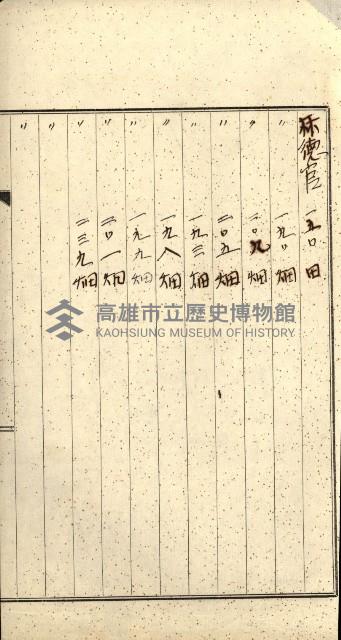 林德官 一五〇 田
〃 一九〇 畑
〃 二〇九 畑
〃 二〇五 畑
〃 一九三 畑
〃 一九八 畑
〃 一九九 畑
〃 二〇一 畑
〃 二三九 畑
〃
〃
高雄市立歷史博物館
KAOHSIUNG MUSEUM OF HISTORY